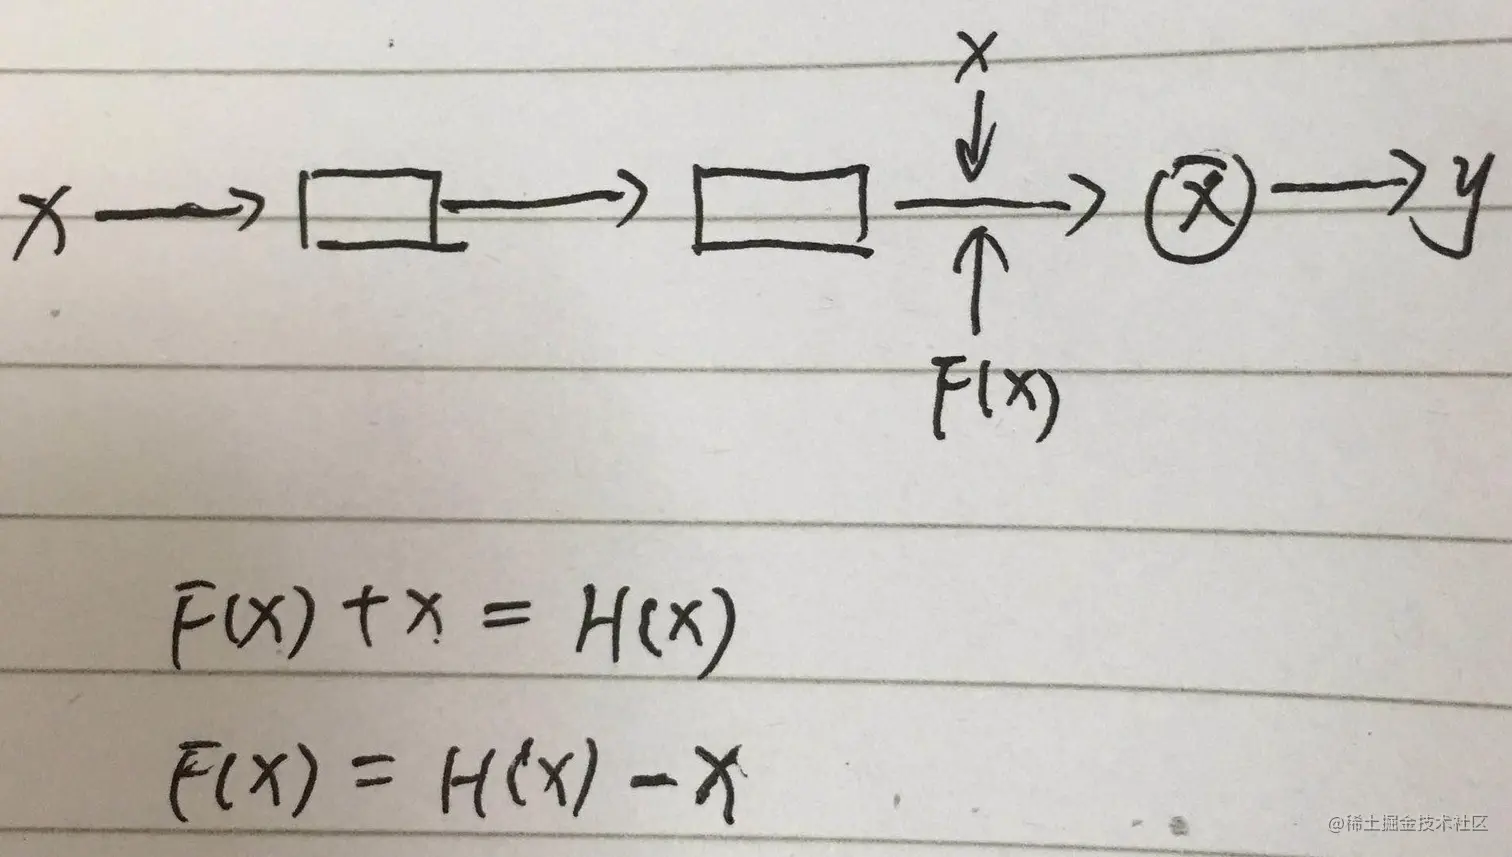 x
x → □ → □ → ⓧ → y
F(x)
F(x) + x = H(x)
F(x) = H(x) - x
@稀土掘金技术社区